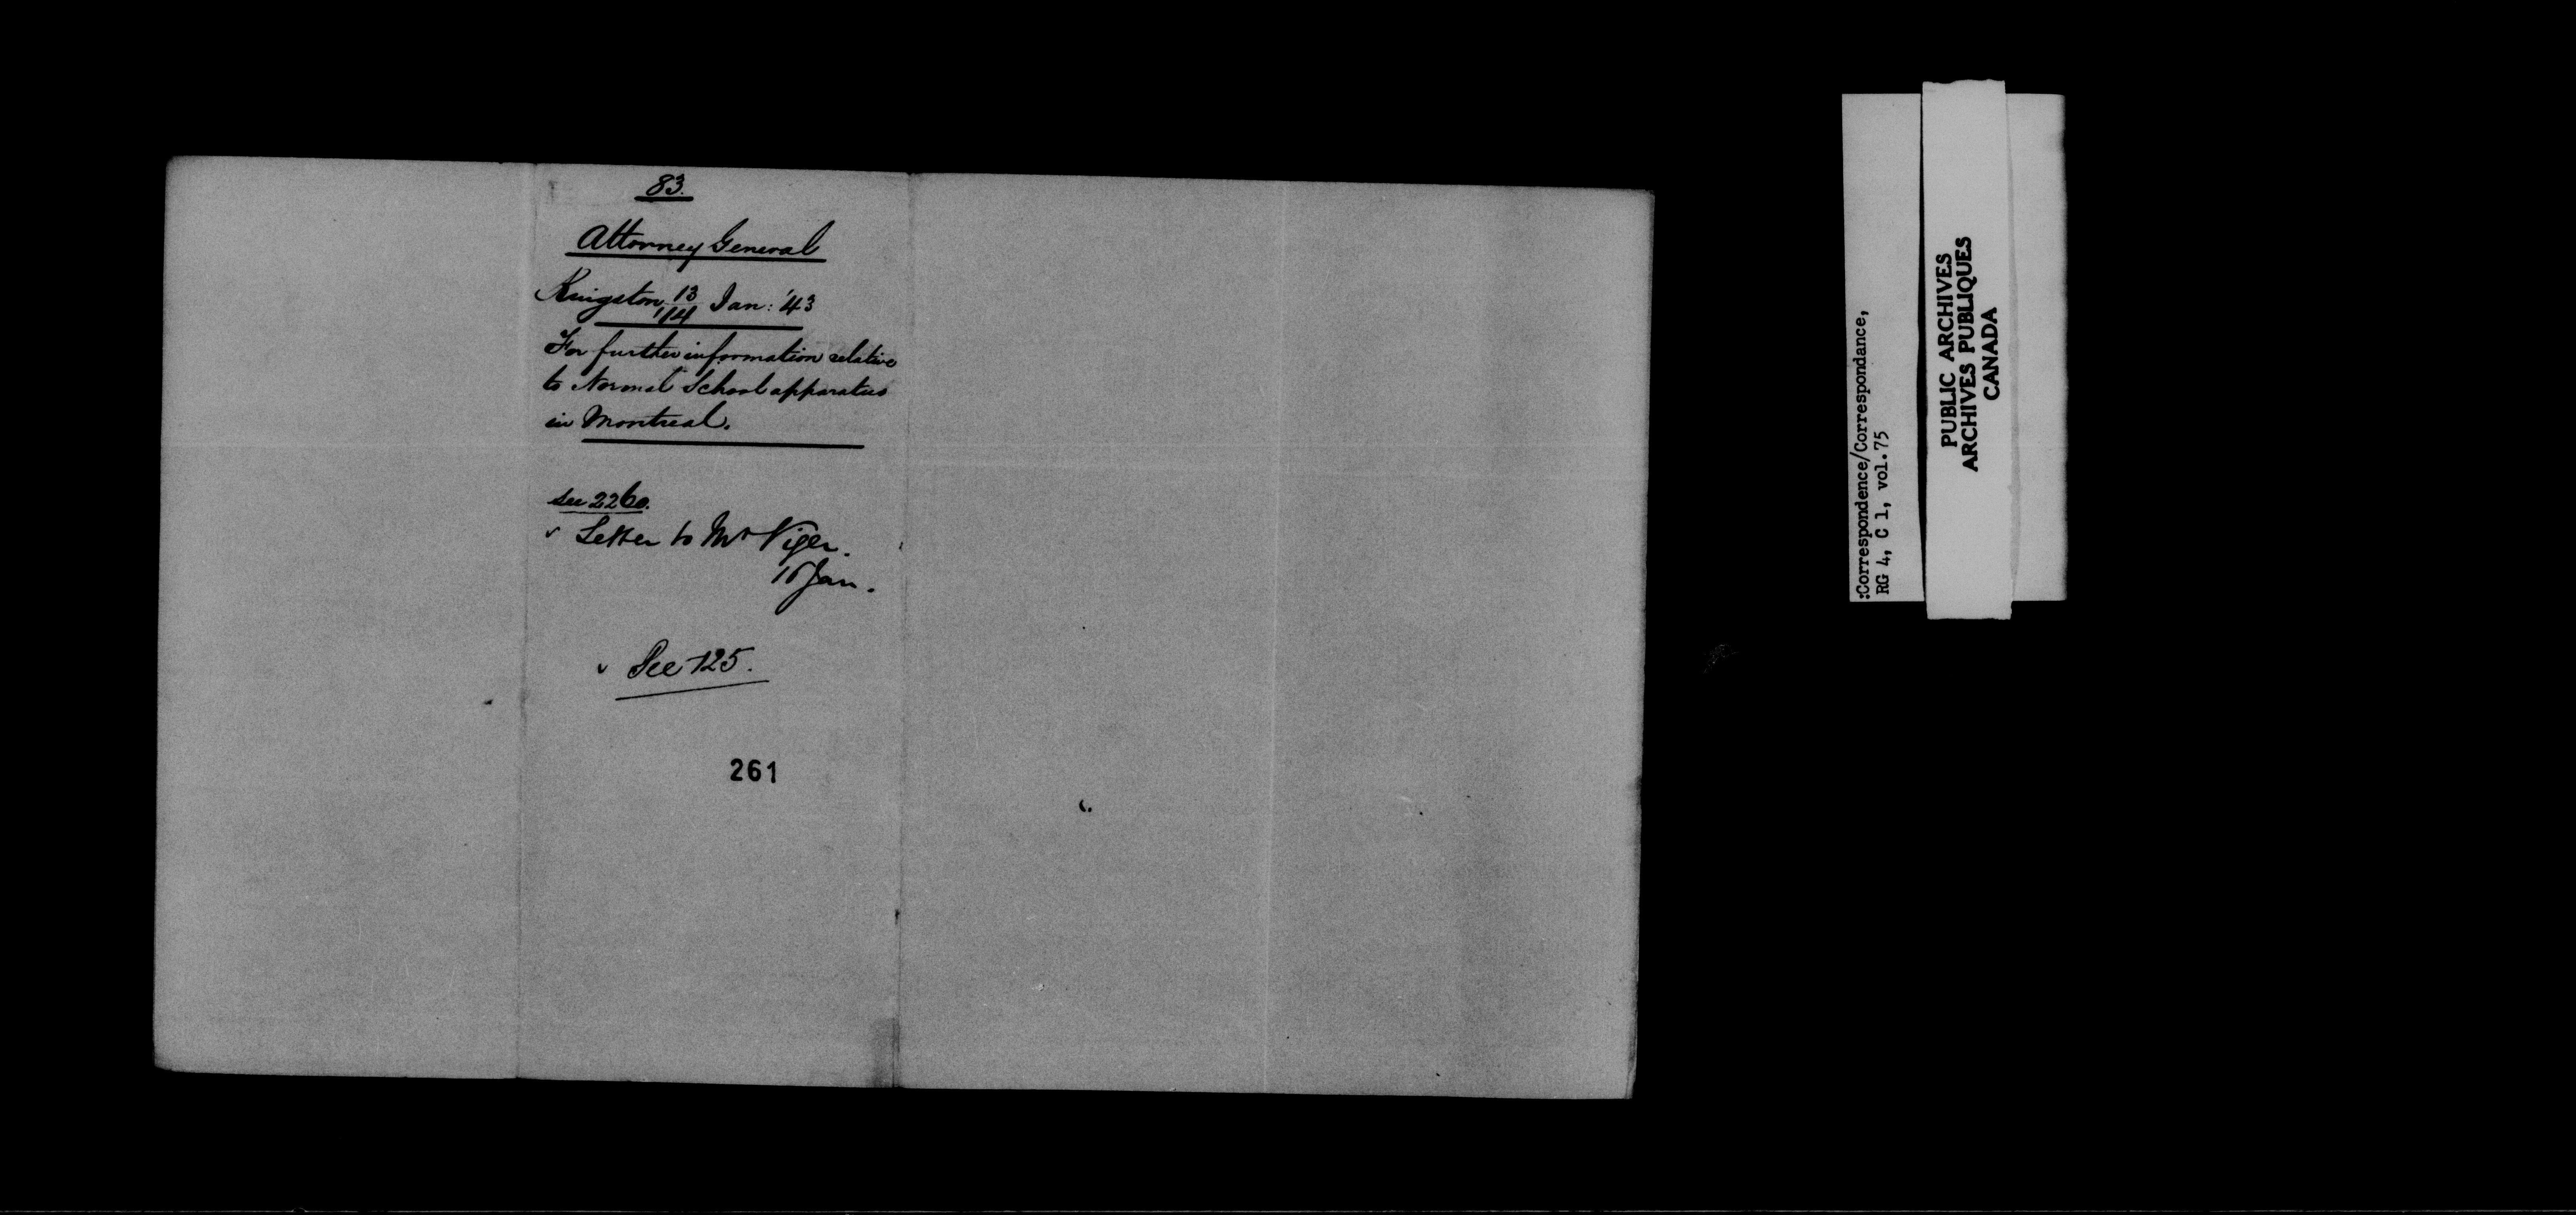 83.
Attorney General
Kingston 13/14 Jan: '43
For further information relative
to Normal School apparatus
in Montreal.
see 2260.
Letter to Mr Viger.
Jan.
See 125.
261
:Correspondence/Correspondance,
RG 4, C 1, vol.75
PUBLIC ARCHIVES
ARCHIVES PUBLIQUES
CANADA